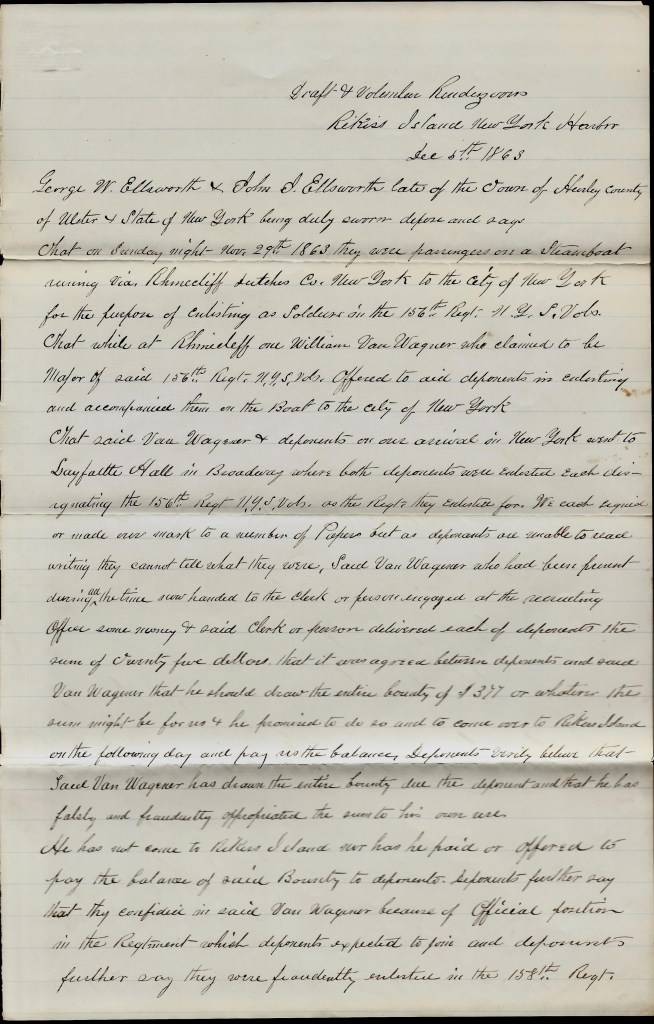 Draft & Volunteer Rendezvous
Rikers Island New York Harbor
Dec 5th 1863
George W. Ellsworth & John J. Ellsworth late of the Town of Hurley County
of Ulster & State of New York being duly sworn depose and says
That on Sunday night Nov. 29th 1863 they were passengers on a Steamboat
runing via. Rhinecliff Dutches Co. New York to the city of New York
for the purpose of enlisting as Soldiers in the 156th Regt. N.Y.S. Vols.
That while at Rhinecleff one William Van Wagner who claimed to be
Major of said 156th Regt. N.Y.S. Vols. Offered to aid deponents in enlisting
and accompanied them on the Boat to the city of New York
That said Van Wagener & deponents on our arrival in New York went to
Layfaltte Hall in Broadway where both deponents were enlisted each des-
ignating the 156th Regt N.Y.S. Vols. as the Regt. they enlisted for. We each signed
or made our mark to a number of Papers but as deponents are unable to read
writing they cannot tell what they were, Said Van Wagener who had been present
during all the time now handed to the Clerk or person engaged at the recruiting
Office some money & said Clerk or person delivered each of deponents the
sum of Twenty five dollors that it was agreed between deponents and said
Van Wagener that he should draw the entire bounty of $377 or whatever the
sum might be for us & he promised to do so and to come over to Rikers Island
on the following day and pay us the balance, Deponents verily believe that
Said Van Wagener has drawn the entire bounty due the deponent and that he has
falsly and fraudently appropriated the sum to his own use
He has not come to Rikers Island nor has he paid or offered to
pay the balance of said Bounty to deponents. Deponents further say
that thy confidied in said Van Wagener because of Official position
in the Regtiment which deponents expected to join and deponents
further say they were fraudently enlisted in the 158th Regt.